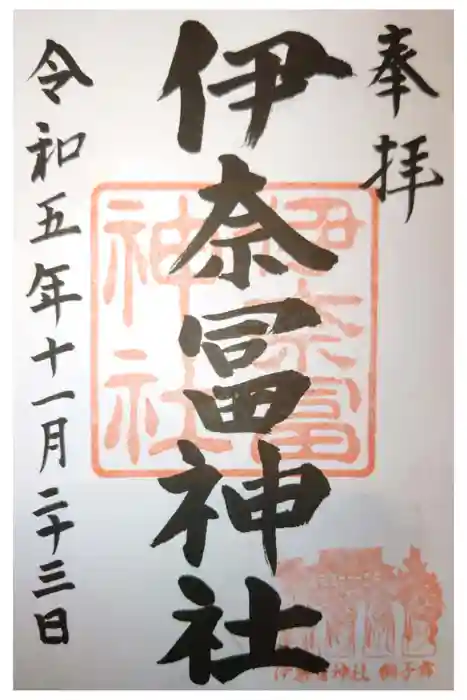 奉拝
伊奈冨神社
令和五年十一月二十三日
伊奈冨神社
伊奈冨神社 獅子舞